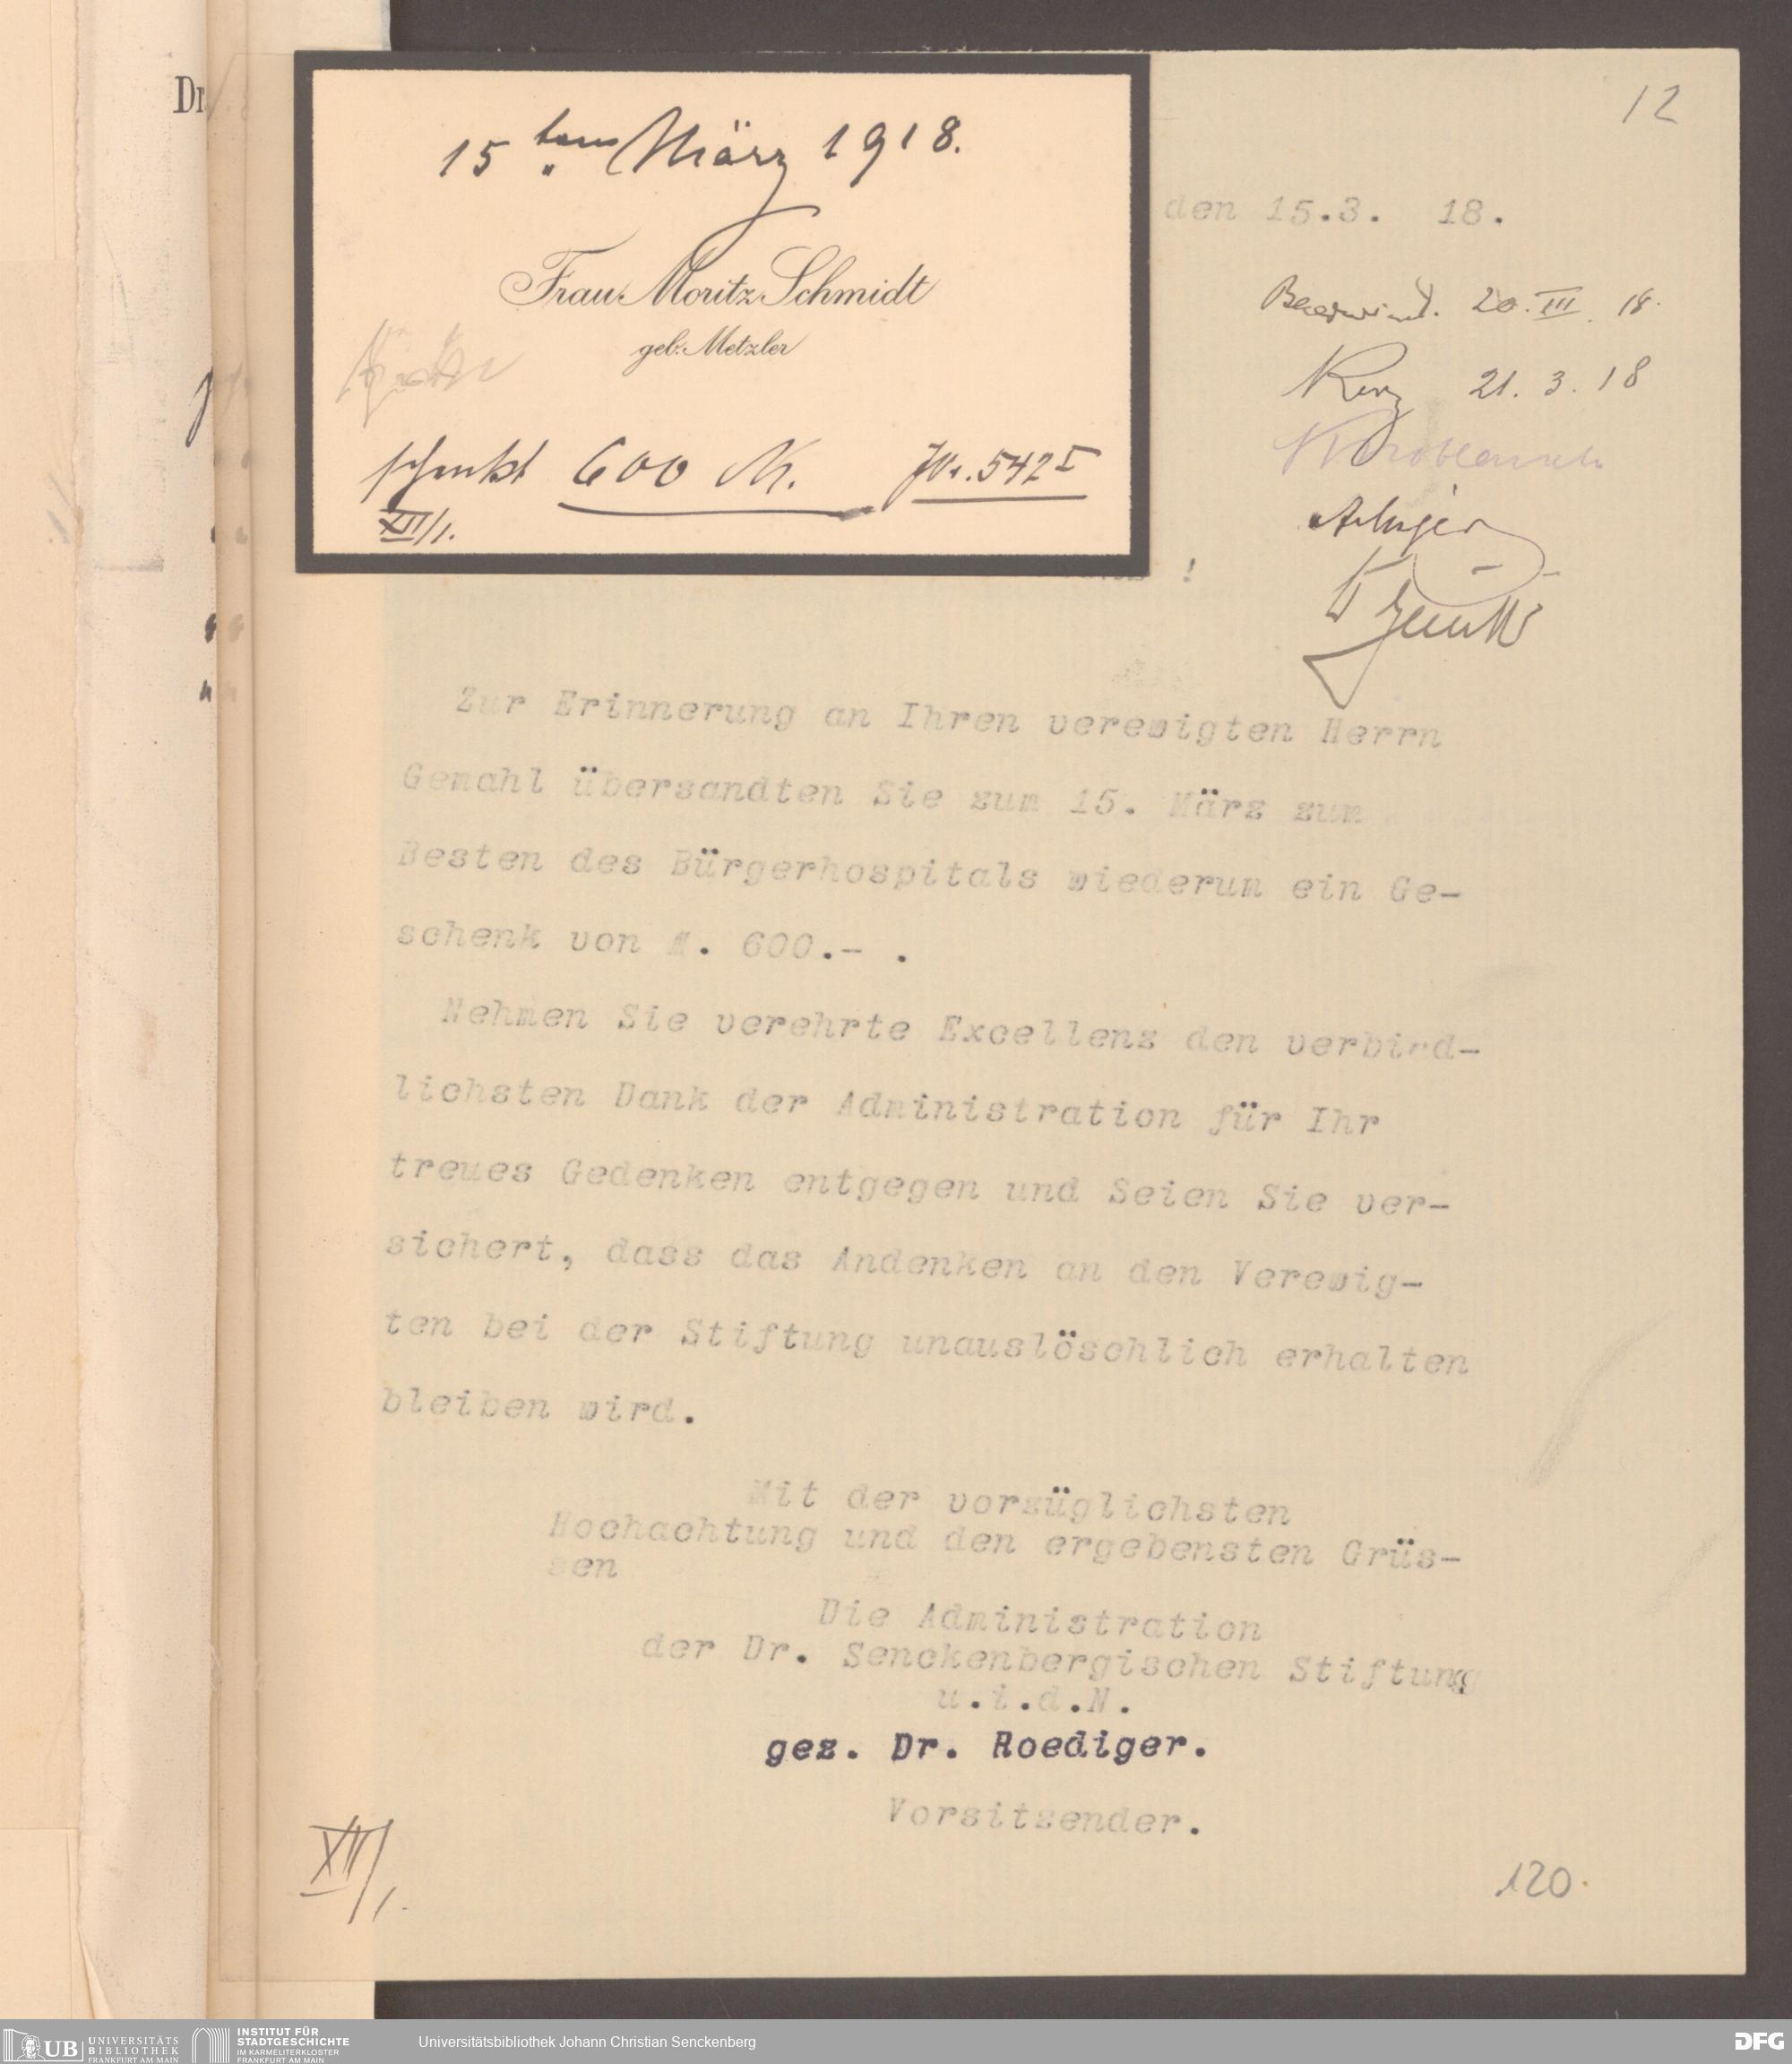 Dr.
12
15 tens März 1918.
Frau Moritz Schmidt
geb. Metzler
schenkt 600 M. JNr. 542 I
XII/1.
den 15.3. 18.
20. III. 18.
21. 3. 18
!
Zur Erinnerung an Ihren verewigten Herrn
Gemahl übersandten Sie zum 15. März zum
Besten des Bürgerhospitals wiederum ein Ge-
schenk von M. 600.- .
Nehmen Sie verehrte Excellenz den verbind-
lichsten Dank der Administration für Ihr
treues Gedenken entgegen und Seien Sie ver-
sichert, dass das Andenken an den Verewig-
ten bei der Stiftung unauslöschlich erhalten
bleiben wird.
Mit der vorzüglichsten
Hochachtung und den ergebensten Grüs-
sen
Die Administration
der Dr. Senckenbergischen Stiftung
u.i.d.N.
gez. Dr. Roediger.
Vorsitzender.
XII/1.
120.
UB UNIVERSITÄTS
BIBLIOTHEK
FRANKFURT AM MAIN
INSTITUT FÜR
STADTGESCHICHTE
IM KARMELITERKLOSTER
FRANKFURT AM MAIN
Universitätsbibliothek Johann Christian Senckenberg
DFG